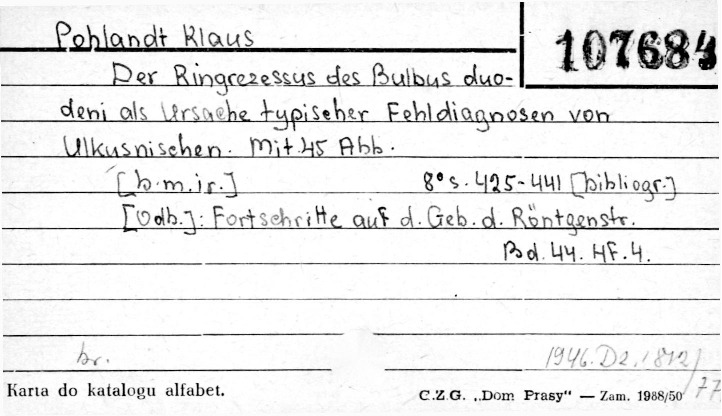 Pohlandt Klaus
107684
Der Ringrezessus des Bulbus duo-
deni als Ursache typischer Fehldiagnosen von
Ulkusnischen. Mit 45 Abb.
[b.m.ir.] 8° s. 425-441 [bibliogr.]
[Odb.]: Fortschritte auf d. Geb. d. Röntgenstr.
Bd. 44. Hf. 4.
br. 1946.D2.1812/77
Karta do katalogu alfabet. C.Z.G. „Dom Prasy" — Zam. 1988/50